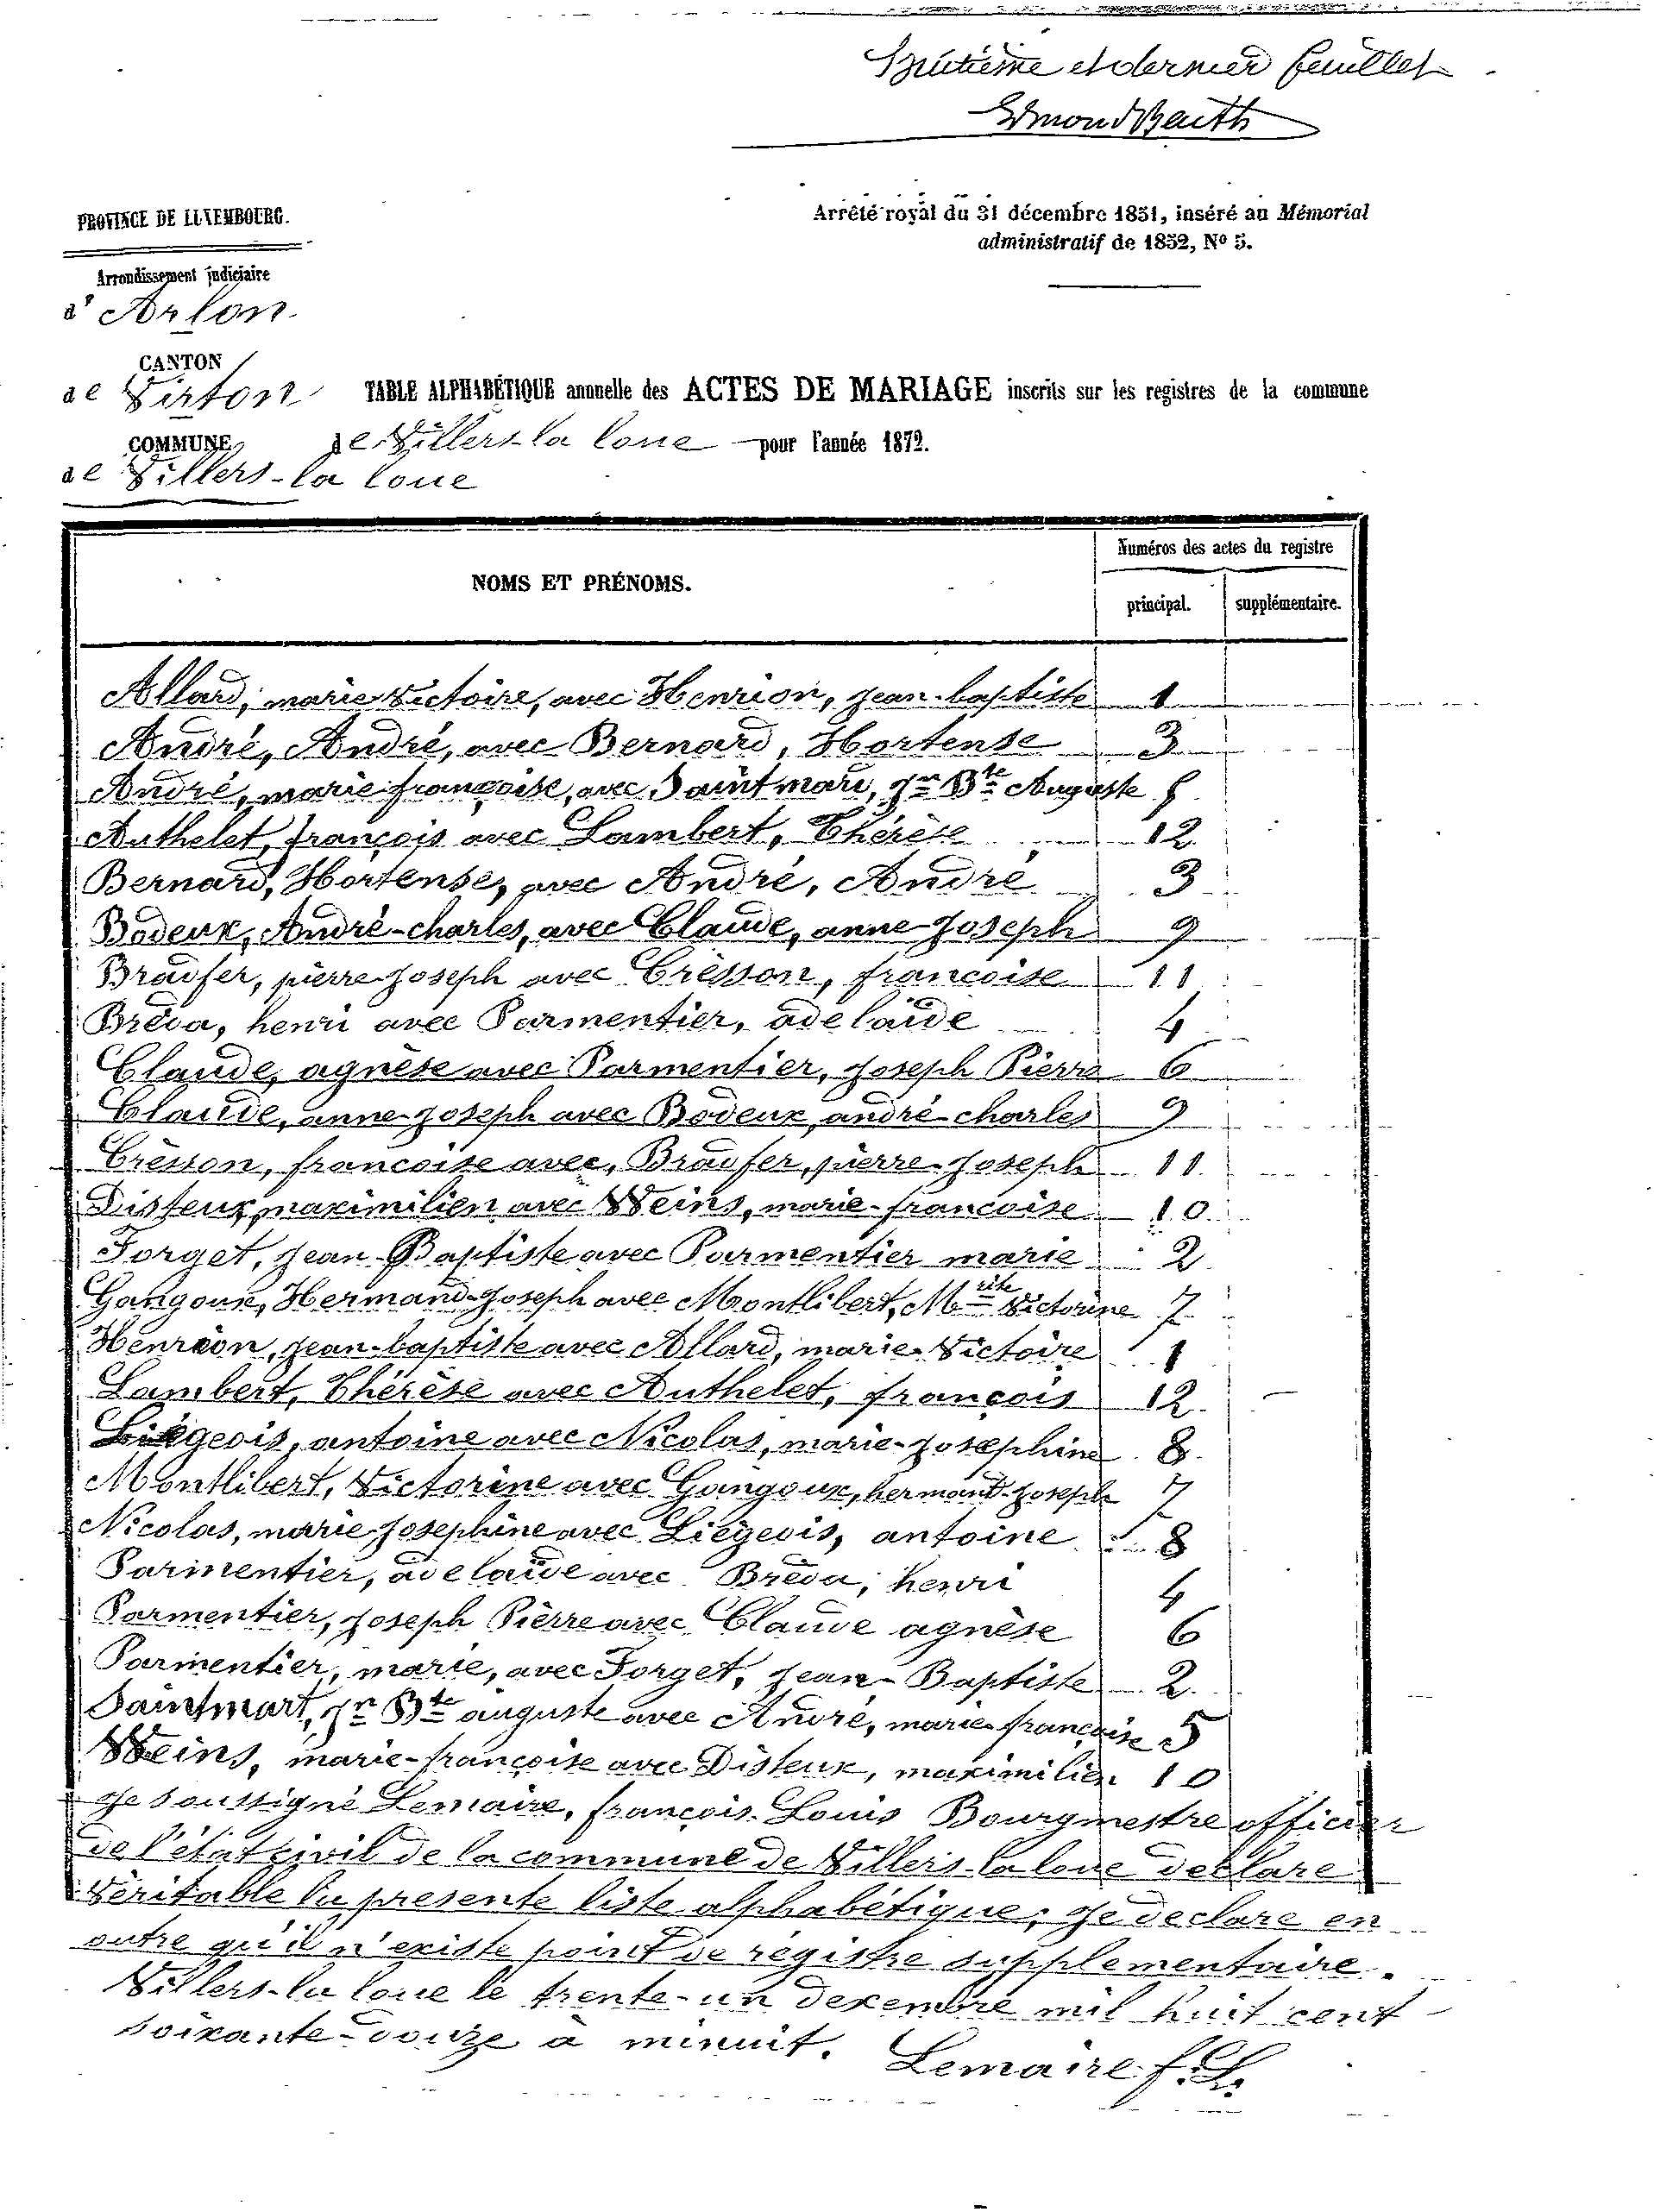 Huitième et dernier feuillet
Edmond Barth
PROVINCE DE LUXEMBOURG.
Arrêté royal du 31 décembre 1851, inséré au Mémorial
administratif de 1852, No 5.
Arrondissement judiciaire
d' Arlon.
CANTON
de Virton
TABLE ALPHABÉTIQUE annuelle des ACTES DE MARIAGE inscrits sur les registres de la commune
COMMUNE
de Villers-la loue pour l'année 1872.
de Villers-la loue
NOMS ET PRÉNOMS.
Numéros des actes du registre
principal.
supplémentaire.
Allard, marie Victoire, avec Henrion, Jean-baptiste 1
André, André, avec Bernard, Hortense 3
André, marie françoise, avec Saintmard, Jn Bte Auguste 5
Authelet, françois avec Lambert, Thérèse 12
Bernard, Hortense, avec André, André 3
Bodeux, André-charles, avec Claude, anne-Joseph 9
Braufer, pierre-Joseph avec Crèsson, francoise 11
Bréda, henri avec Parmentier, adelaïde 4
Claude, agnèse avec Parmentier, Joseph Pierre 6
Claude, anne-Joseph avec Bodeux, andré-charles 9
Crèsson, francoise avec, Braufer, pierre-Joseph 11
Disteux, maximilien avec Weins, marie-francoise 10
Forget, Jean-Baptiste avec Parmentier marie 2
Gangoux, Hermand-Joseph avec Montlibert, Mrite Victorine 7
Henrion, Jean-baptiste avec Allard, marie-Victoire 1
Lambert, Thérèse avec Authelet, françois 12
Liégeois, antoine avec Nicolas, marie-Josephine 8
Montlibert, Victorine avec Gangoux, hermand-Joseph 7
Nicolas, marie Josephine avec Liégeois, antoine 8
Parmentier, adelaïde avec Bréda, henri 4
Parmentier, Joseph Pièrre avec Claude agnèse 6
Parmentier, marie, avec Forget, Jean-Baptiste 2
Saintmart, Jn Bte auguste avec André, marie françoise 5
Weins, marie-françoise avec Disteux, maximilien 10
Je soussigné Lemaire, françois-Louis Bourgmestre officier
de l'état civil de la commune de Villers-la loue declare
Véritable la presente liste alphabétique; Je declare en
outre qu'il n'existe point de régistre supplementaire.
Villers-la loue le trente-un decembre mil huit cent
soixante-douze à minuit.
Lemaire f. L.